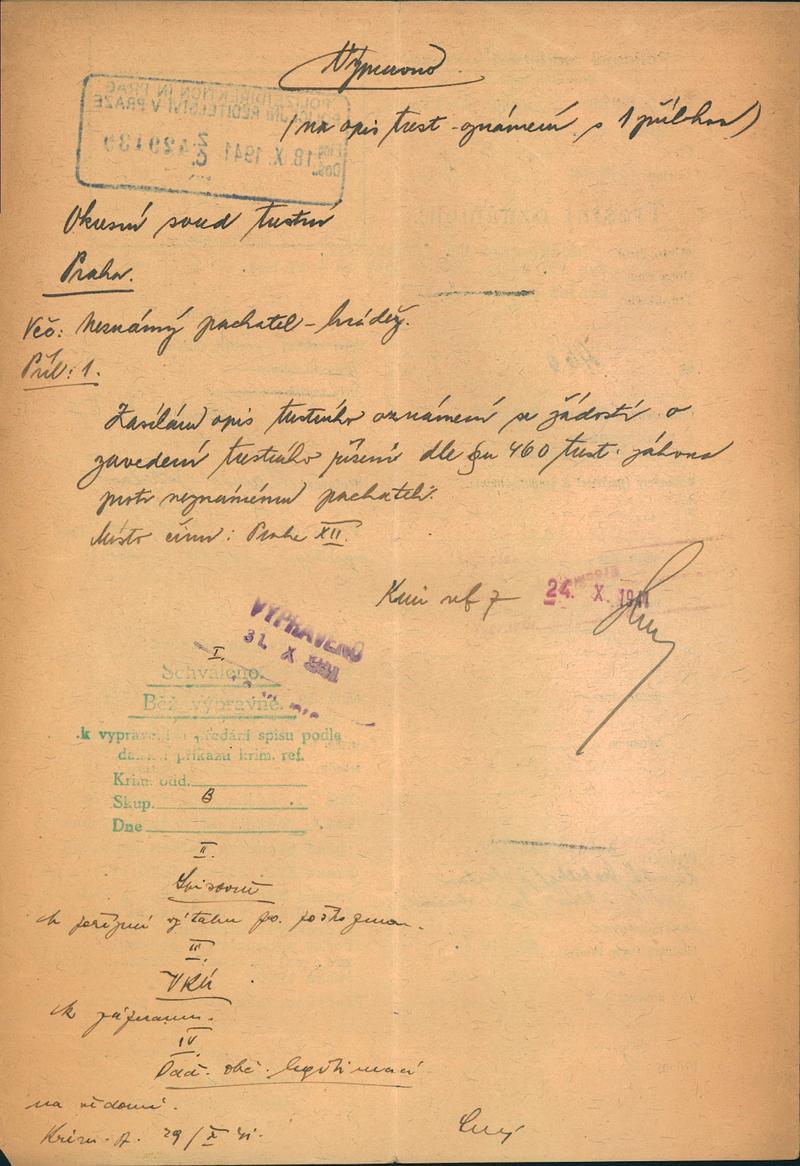 Výpravně
(na opis trest. oznámení s 1 přílohou)
POLIZEIDIREKTION IN PRAG
POLICEJNÍ ŘEDITELSTVÍ V PRAZE
18. X. 1941
Okresní soud trestní
Praha.
Věc: Neznámý pachatel – krádež.
Příl: 1.
Zasílám opis trestního oznámení se žádostí o
zavedení trestního řízení dle §u 460 trest. zákona
proti neznámému pachateli.
Místo činu: Praha XII.
Krim ref 7
24. X. 1941
VYPRAVENO
31. X 1941
I.
Schváleno.
Běž. výpravně.
k vypravení a předání spisu podle
dalšího příkazu krim. ref.
Krim. odd.
Skup. B
Dne
II.
Spisovně
k pořízení výtahu po
III.
VKÚ
k záznamu.
IV.
Odd. obč. legitimací
na vědomí.
Krim. 29/X 41.